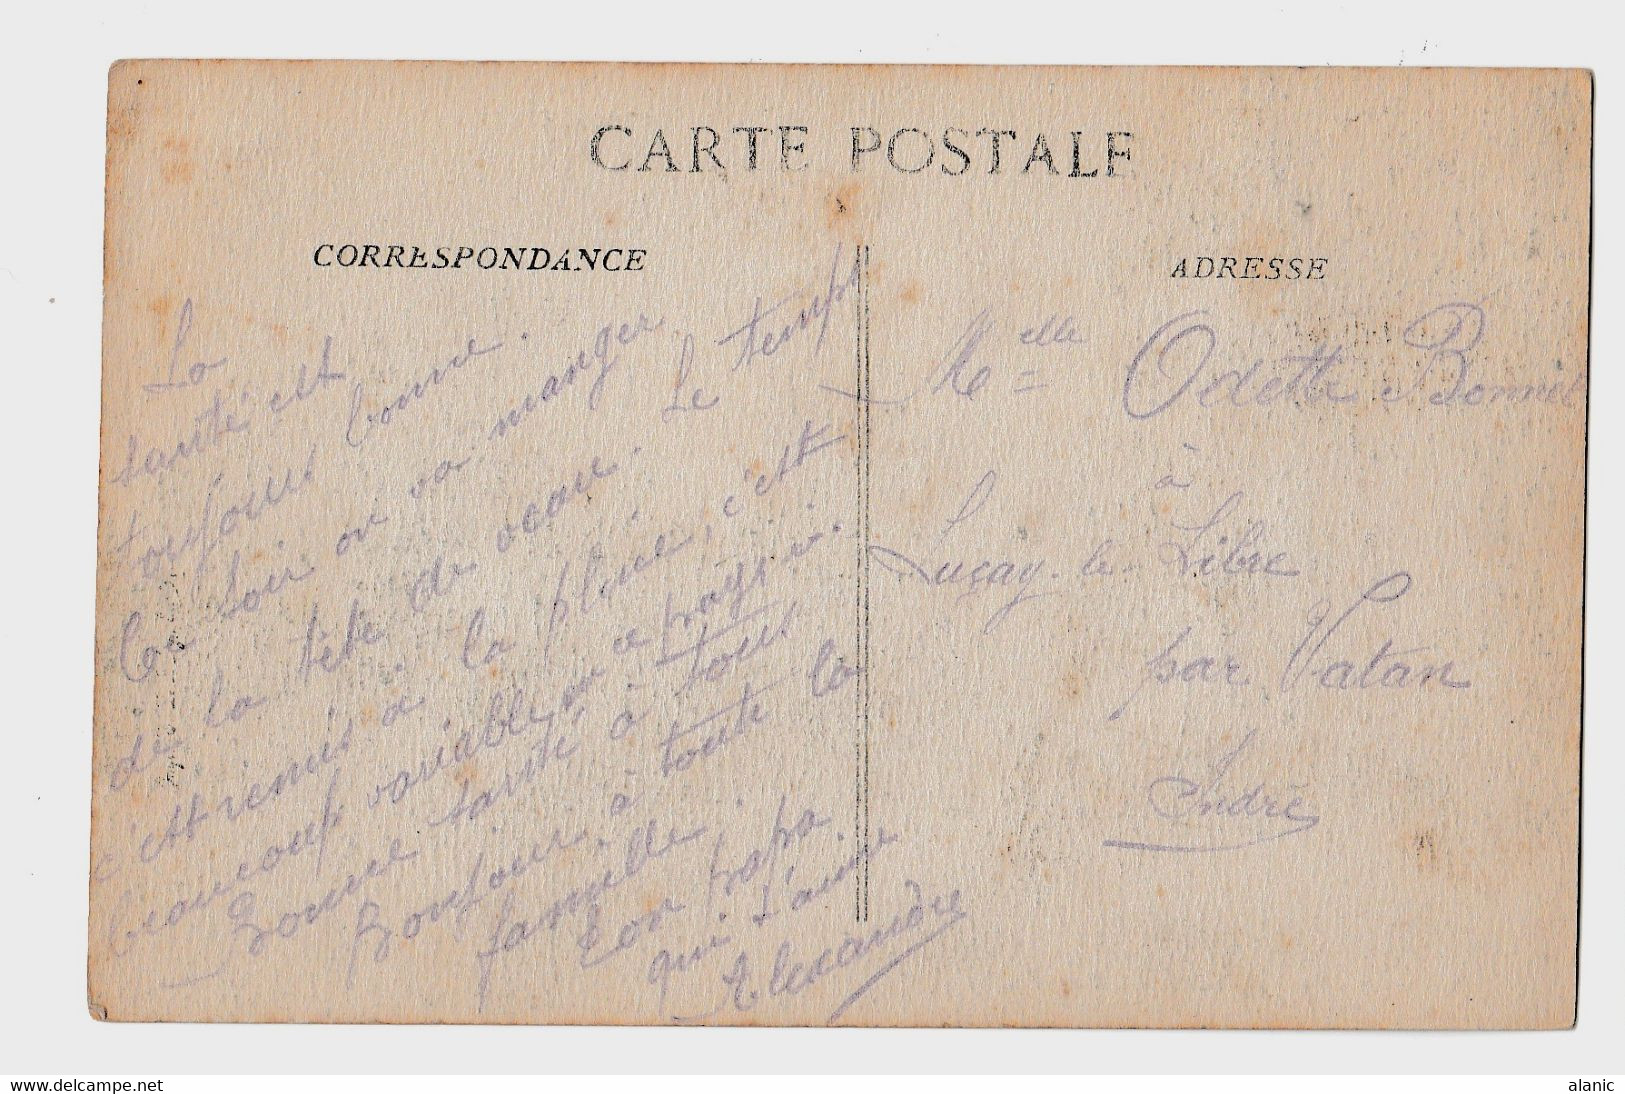 CARTE POSTALE
CORRESPONDANCE
La
santé est
toujours bonne.
Ce soir on va manger
de la tête de veau. Le temps
c'est remis à la pluie, c'est
beaucoup variable en ce pays-ci.
Bonne santé à tous
Bonjour à toute la
famille.
Ton papa
qui t'aime
Alexandre
ADRESSE
Melle Odette Bonnet
à
Luçay-le-Libre
par Vatan
Indre
delcampe.net
alanic